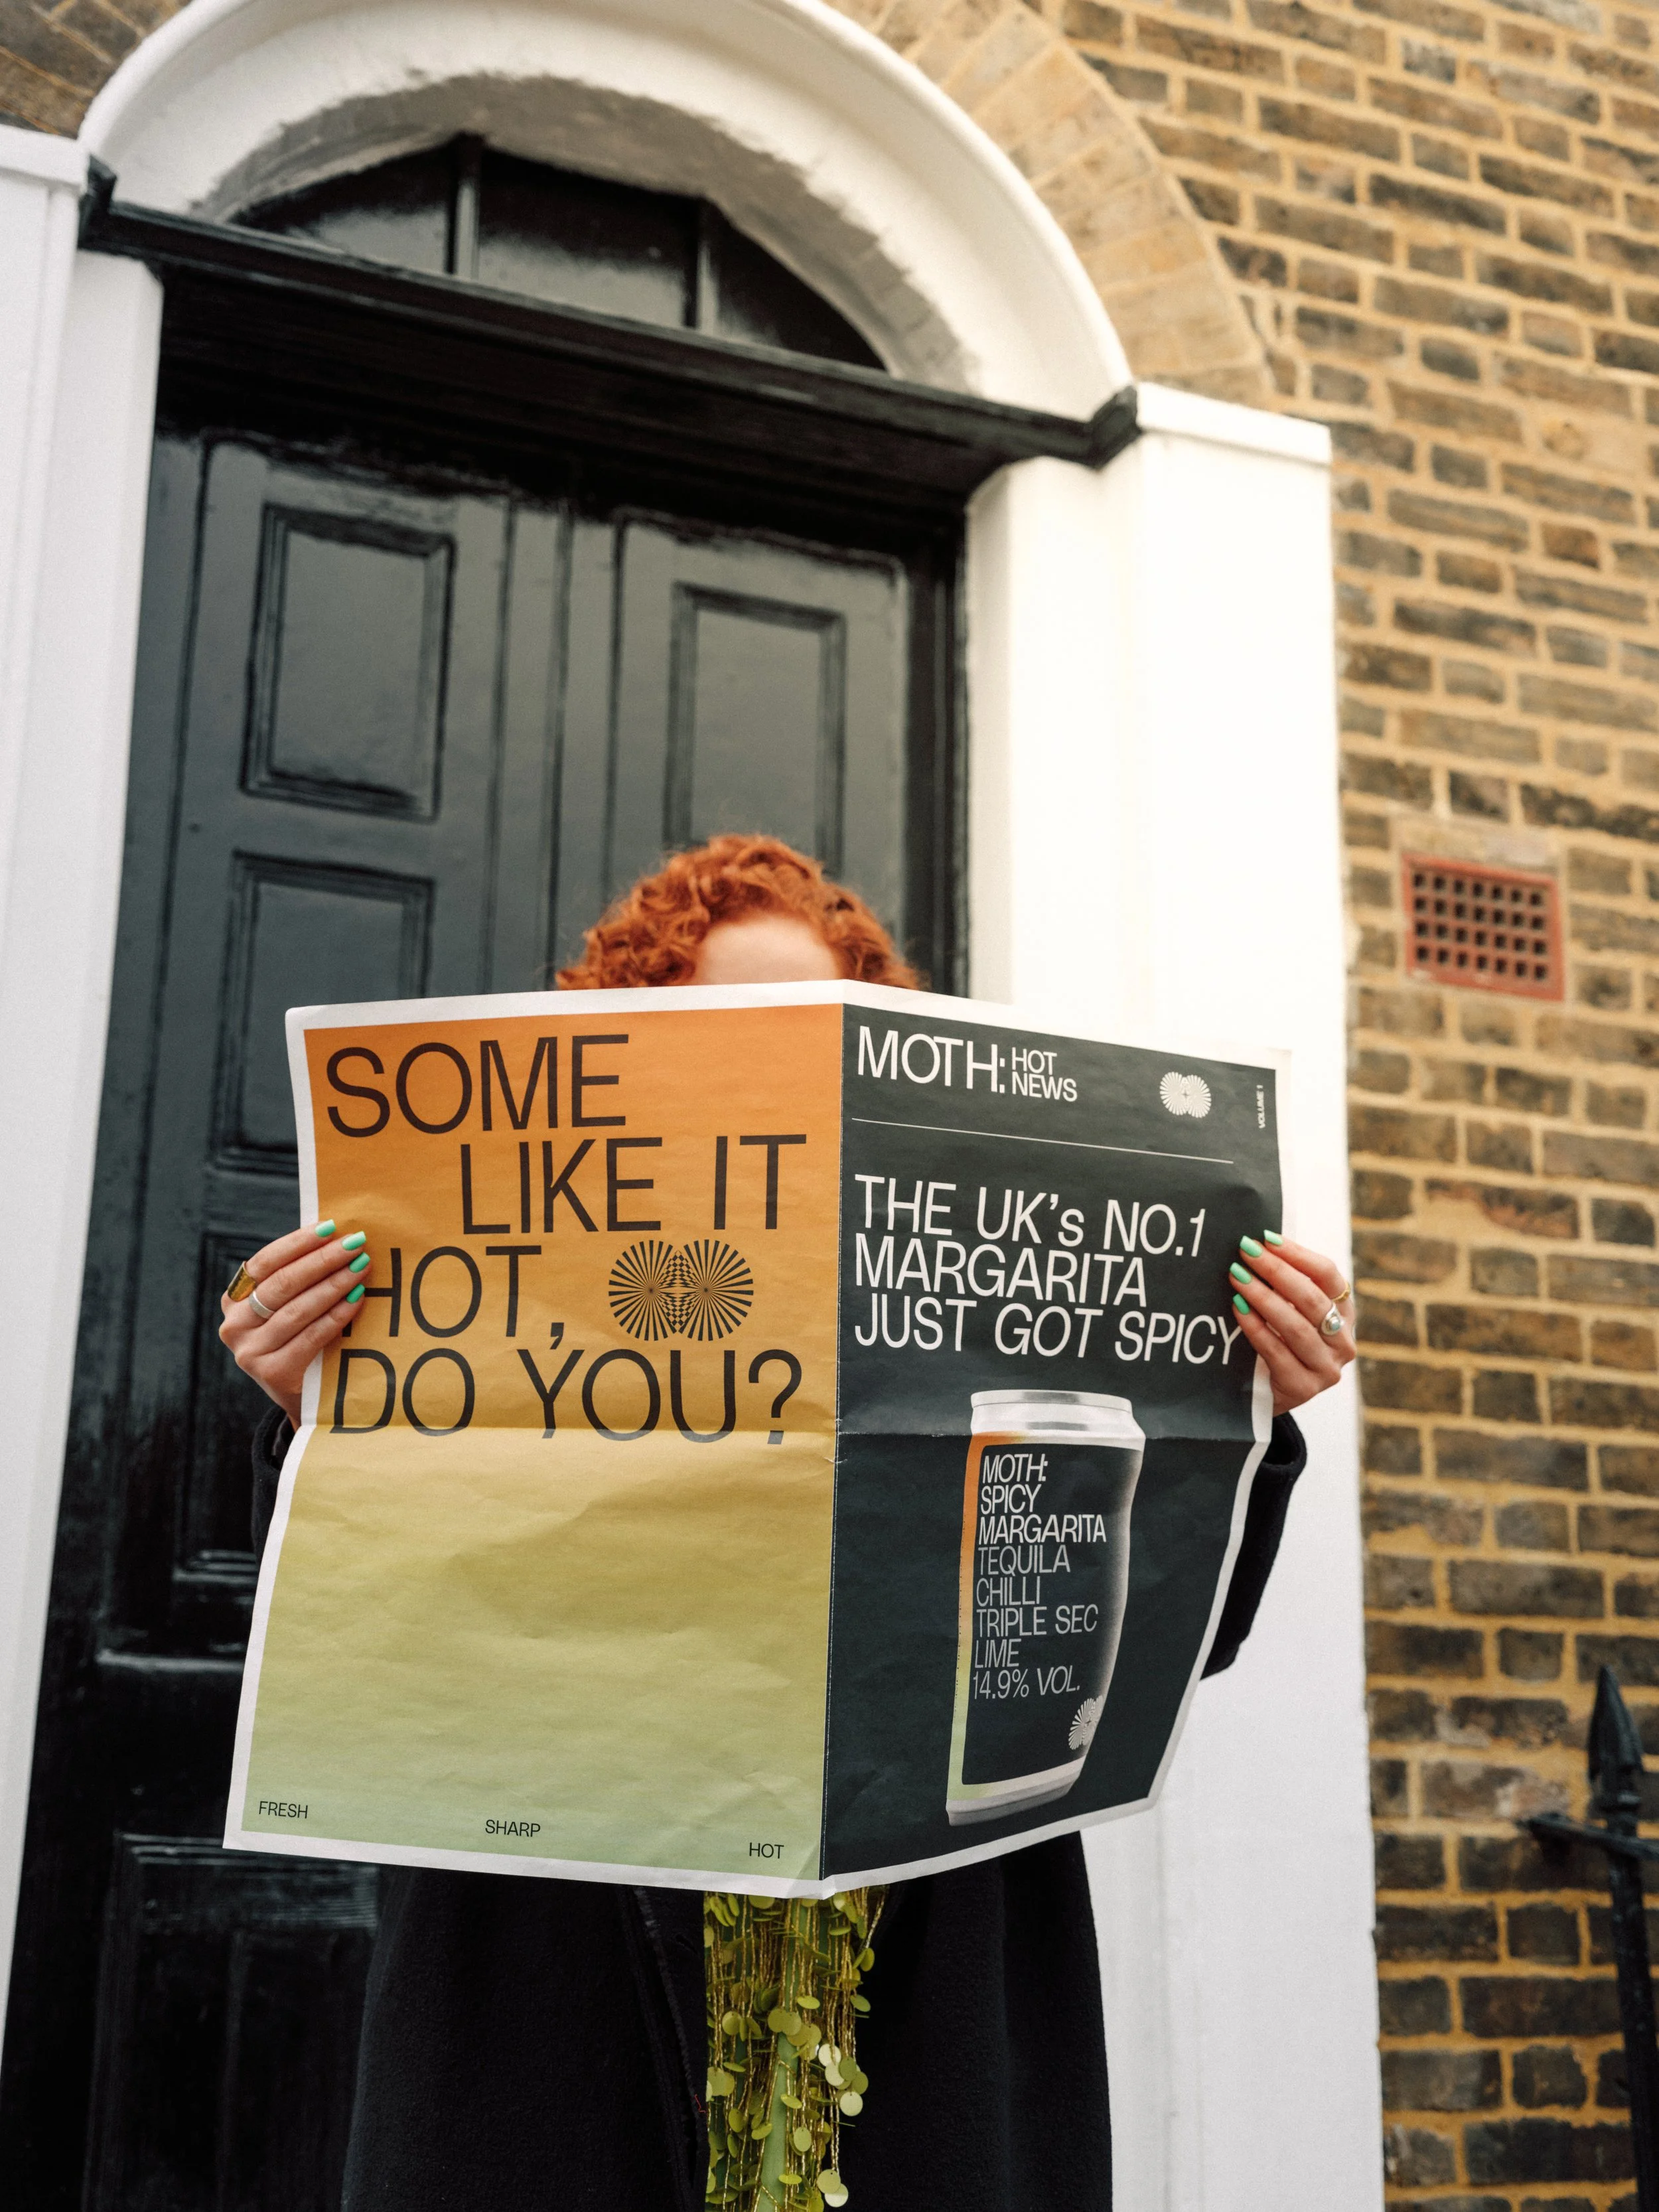 SOME
LIKE IT
HOT,
DO YOU?
FRESH
SHARP
HOT
MOTH: HOT
NEWS
VOLUME 1
THE UK's NO.1
MARGARITA
JUST GOT SPICY
MOTH:
SPICY
MARGARITA
TEQUILA
CHILLI
TRIPLE SEC
LIME
14.9% VOL.